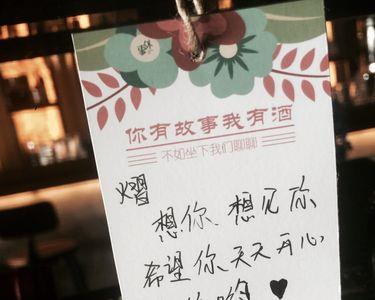 你有故事我有酒
不如坐下我们聊聊
熠
想你 想见你
希望你天天开心